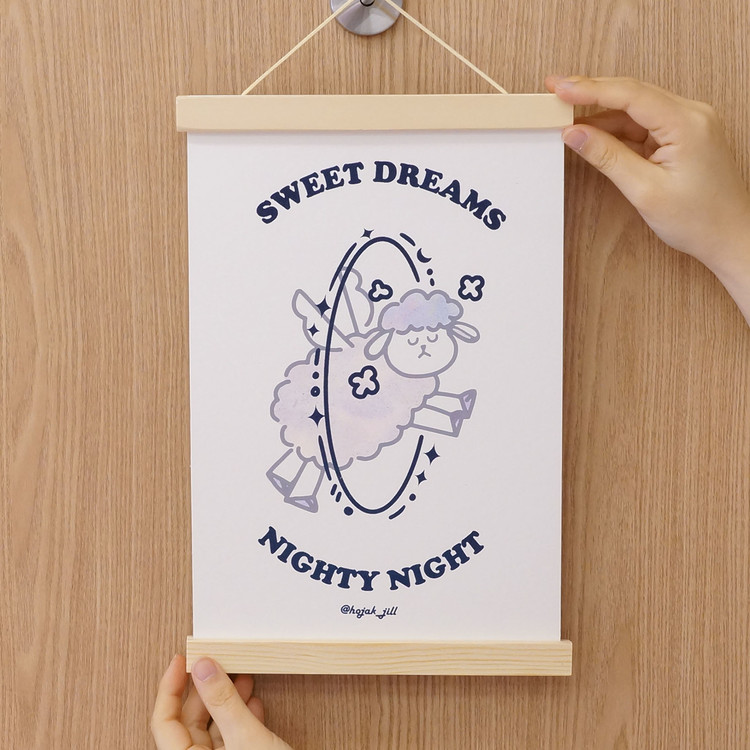 SWEET DREAMS
NIGHTY NIGHT
@hojak_jill